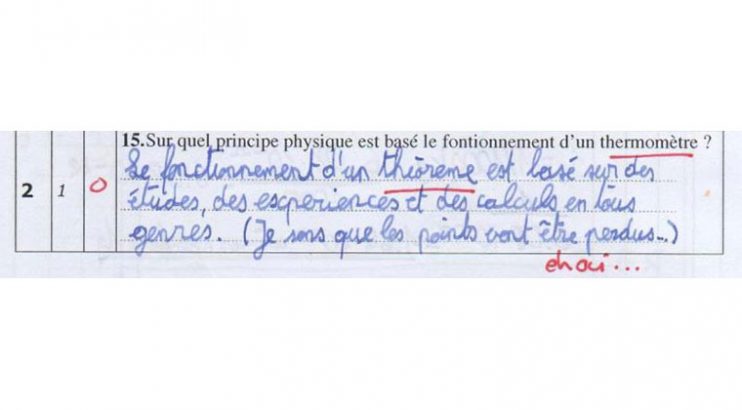 15.Sur quel principe physique est basé le fontionnement d'un thermomètre ?
2 1 0 Le fonctionnement d'un théoreme est basé sur des
études, des experiences et des calculs en tous
genres. (Je sens que les points vont être perdus...)
eh oui...